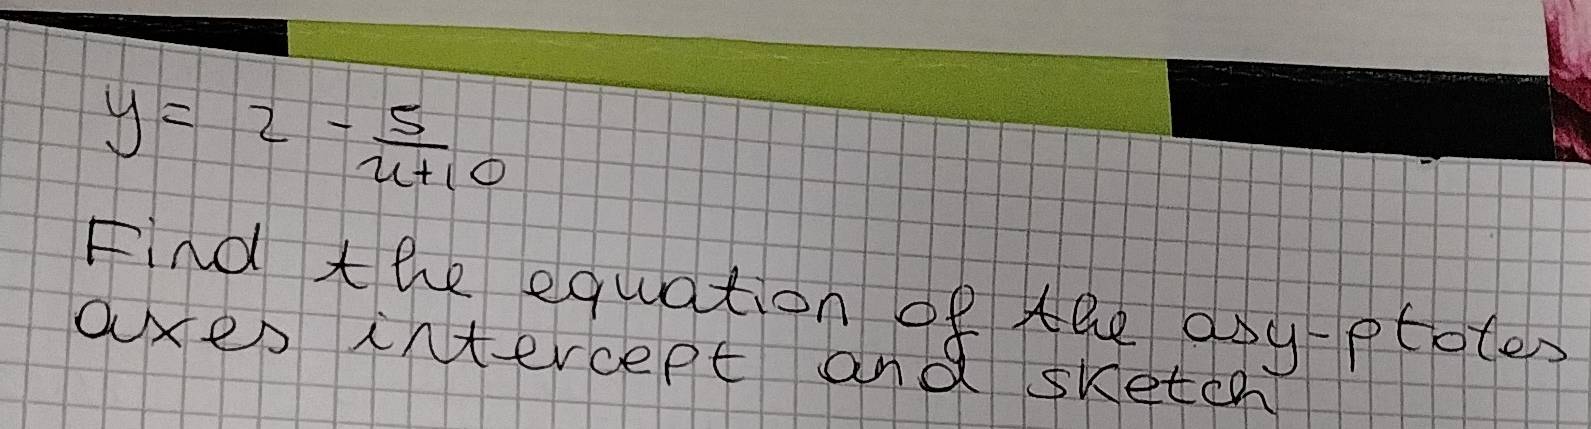 y = 2 - 5/x+10
Find the equation of the asy-ptotes
axes intercept and sketch